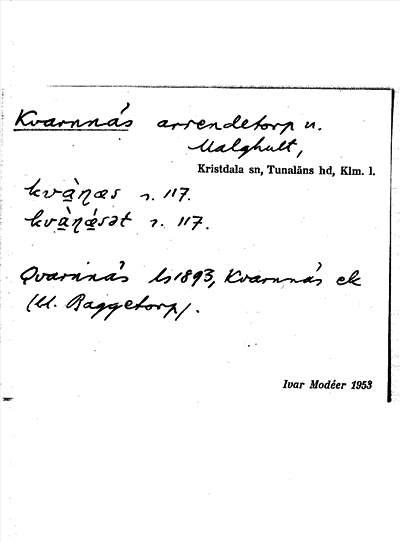 Kvarnnäs arrendetorp u.
Malghult,
Kristdala sn, Tunaläns hd, Klm. l.
kvàn̠æs s. 117.
kvàn̠ǽsət s. 117.
Qvarnnäs ls 1893, Kvarnnäs ek
(U. Baggetorp).
Ivar Modéer 1953